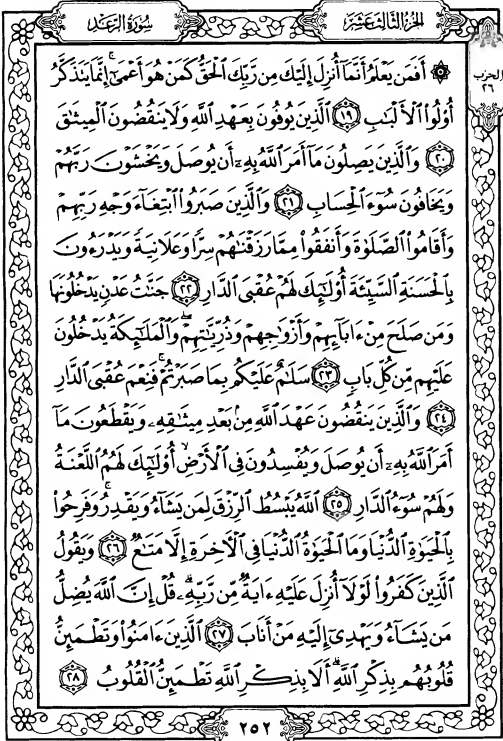 الجزء الثالث عشر
سورة الرعد
الحزب
٢٦
۞ أَفَمَن يَعْلَمُ أَنَّمَآ أُنزِلَ إِلَيْكَ مِن رَّبِّكَ ٱلْحَقُّ كَمَنْ هُوَ أَعْمَىٰٓ ۚ إِنَّمَا يَتَذَكَّرُ
أُو۟لُوا۟ ٱلْأَلْبَـٰبِ ١٩ ٱلَّذِينَ يُوفُونَ بِعَهْدِ ٱللَّهِ وَلَا يَنقُضُونَ ٱلْمِيثَـٰقَ
٢٠ وَٱلَّذِينَ يَصِلُونَ مَآ أَمَرَ ٱللَّهُ بِهِۦٓ أَن يُوصَلَ وَيَخْشَوْنَ رَبَّهُمْ
وَيَخَافُونَ سُوٓءَ ٱلْحِسَابِ ٢١ وَٱلَّذِينَ صَبَرُوا۟ ٱبْتِغَآءَ وَجْهِ رَبِّهِمْ
وَأَقَامُوا۟ ٱلصَّلَوٰةَ وَأَنفَقُوا۟ مِمَّا رَزَقْنَـٰهُمْ سِرًّا وَعَلَانِيَةً وَيَدْرَءُونَ
بِٱلْحَسَنَةِ ٱلسَّيِّئَةَ أُو۟لَـٰٓئِكَ لَهُمْ عُقْبَى ٱلدَّارِ ٢٢ جَنَّـٰتُ عَدْنٍ يَدْخُلُونَهَا
وَمَن صَلَحَ مِنْ ءَابَآئِهِمْ وَأَزْوَٰجِهِمْ وَذُرِّيَّـٰتِهِمْ ۖ وَٱلْمَلَـٰٓئِكَةُ يَدْخُلُونَ
عَلَيْهِم مِّن كُلِّ بَابٍ ٢٣ سَلَـٰمٌ عَلَيْكُم بِمَا صَبَرْتُمْ ۚ فَنِعْمَ عُقْبَى ٱلدَّارِ
٢٤ وَٱلَّذِينَ يَنقُضُونَ عَهْدَ ٱللَّهِ مِنۢ بَعْدِ مِيثَـٰقِهِۦ وَيَقْطَعُونَ مَآ
أَمَرَ ٱللَّهُ بِهِۦٓ أَن يُوصَلَ وَيُفْسِدُونَ فِى ٱلْأَرْضِ ۙ أُو۟لَـٰٓئِكَ لَهُمُ ٱللَّعْنَةُ
وَلَهُمْ سُوٓءُ ٱلدَّارِ ٢٥ ٱللَّهُ يَبْسُطُ ٱلرِّزْقَ لِمَن يَشَآءُ وَيَقْدِرُ ۚ وَفَرِحُوا۟
بِٱلْحَيَوٰةِ ٱلدُّنْيَا وَمَا ٱلْحَيَوٰةُ ٱلدُّنْيَا فِى ٱلْـَٔاخِرَةِ إِلَّا مَتَـٰعٌ ٢٦ وَيَقُولُ
ٱلَّذِينَ كَفَرُوا۟ لَوْلَآ أُنزِلَ عَلَيْهِ ءَايَةٌ مِّن رَّبِّهِۦ ۗ قُلْ إِنَّ ٱللَّهَ يُضِلُّ
مَن يَشَآءُ وَيَهْدِىٓ إِلَيْهِ مَنْ أَنَابَ ٢٧ ٱلَّذِينَ ءَامَنُوا۟ وَتَطْمَئِنُّ
قُلُوبُهُم بِذِكْرِ ٱللَّهِ ۗ أَلَا بِذِكْرِ ٱللَّهِ تَطْمَئِنُّ ٱلْقُلُوبُ ٢٨
٢٥٢